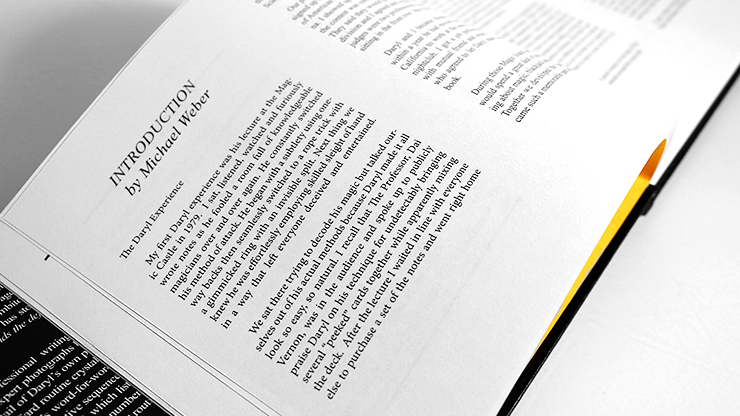 INTRODUCTION
by Michael Weber
The Daryl Experience
My first Daryl experience was his lecture at the Mag-
ic Castle in 1979. I sat, listened, watched and furiously
wrote notes as he fooled a room full of knowledgeable
magicians over and over again. He constantly switched
his method of attack. He began with a subtlety using one-
way backs then seamlessly switched to a rope trick with
a gimmicked ring with an invisible split. Next thing we
knew he was effortlessly employing skilled sleight of hand
in a way that left everyone deceived and entertained.
We sat there trying to decode his magic but talked our-
selves out of his actual methods because Daryl made it all
look so easy, so natural. I recall that The Professor, Dai
Vernon, was in the audience and spoke up to publicly
praise Daryl on his technique for undetectably bringing
several "peeked" cards together while apparently mixing
the deck. After the lecture I waited in line with everyone
else to purchase a set of the notes and went right home
of American
the content was
They said they
division and I
judges were
sitting in the front
Daryl and I
within a year
California to work
nightclub. I got a
with mutual friend
who agreed to let
book.
During those Magi
would spend a great
ing about magic,
Together we devised
came such a memorable
has sto
nds the de
essional writing
xpert photographs
n of Daryl's own p
d routine crysta
s word-for-wo
ive sequences
which le
number